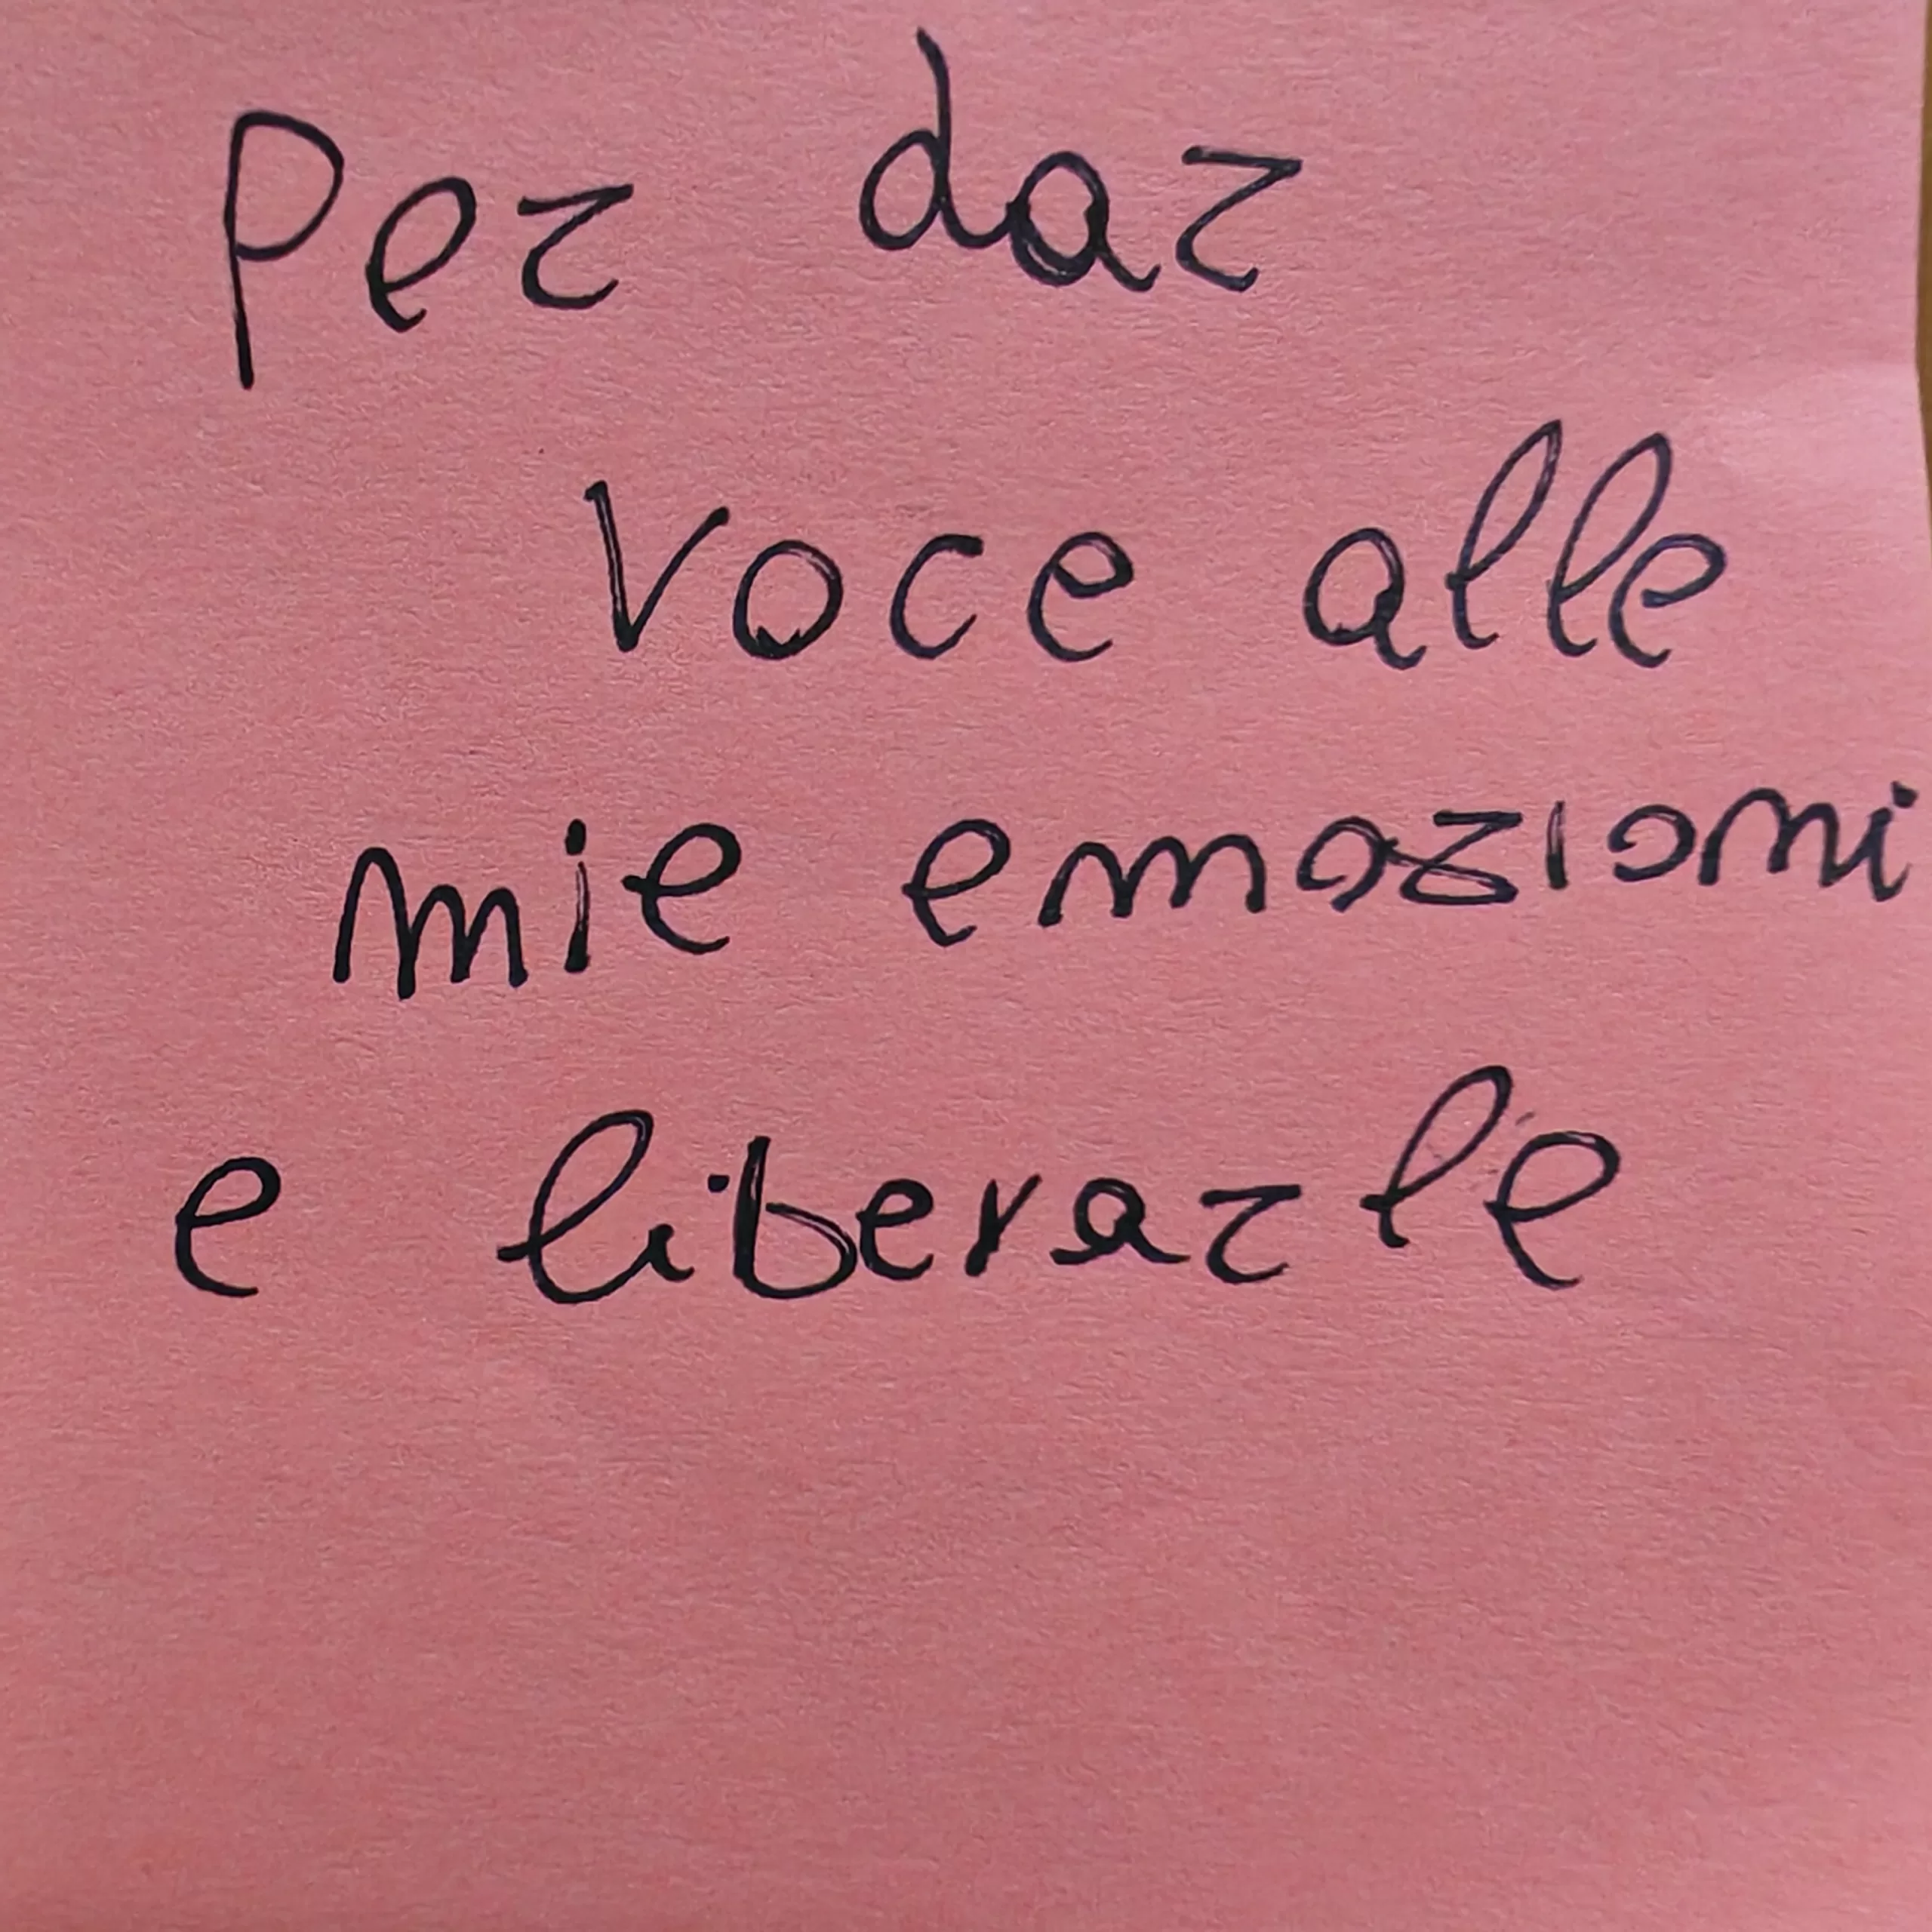 Per dar
voce alle
mie emozioni
e liberarle